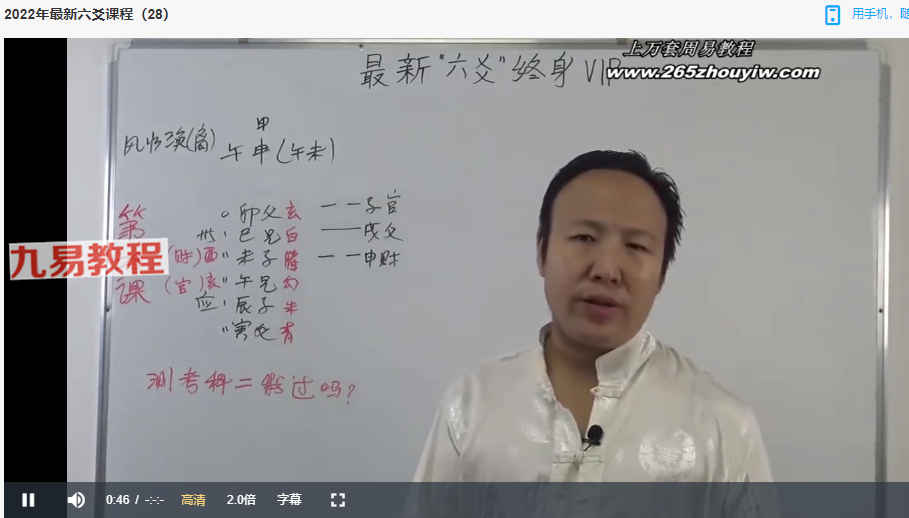 2022年最新六爻课程（28）
用手机，随
上万套周易教程
www.265zhouyiw.com
最新"六爻"终身VIP
甲
风水涣(离) 午申(午未)
第
课
九易教程
卯父玄 子官
世 巳兄白 戌父
(财)酉 未子腾 申财
(官)亥 午兄勾
应 辰子朱
寅父青
测考科二能过吗?
0:46 / -:-:-
高清
2.0倍
字幕